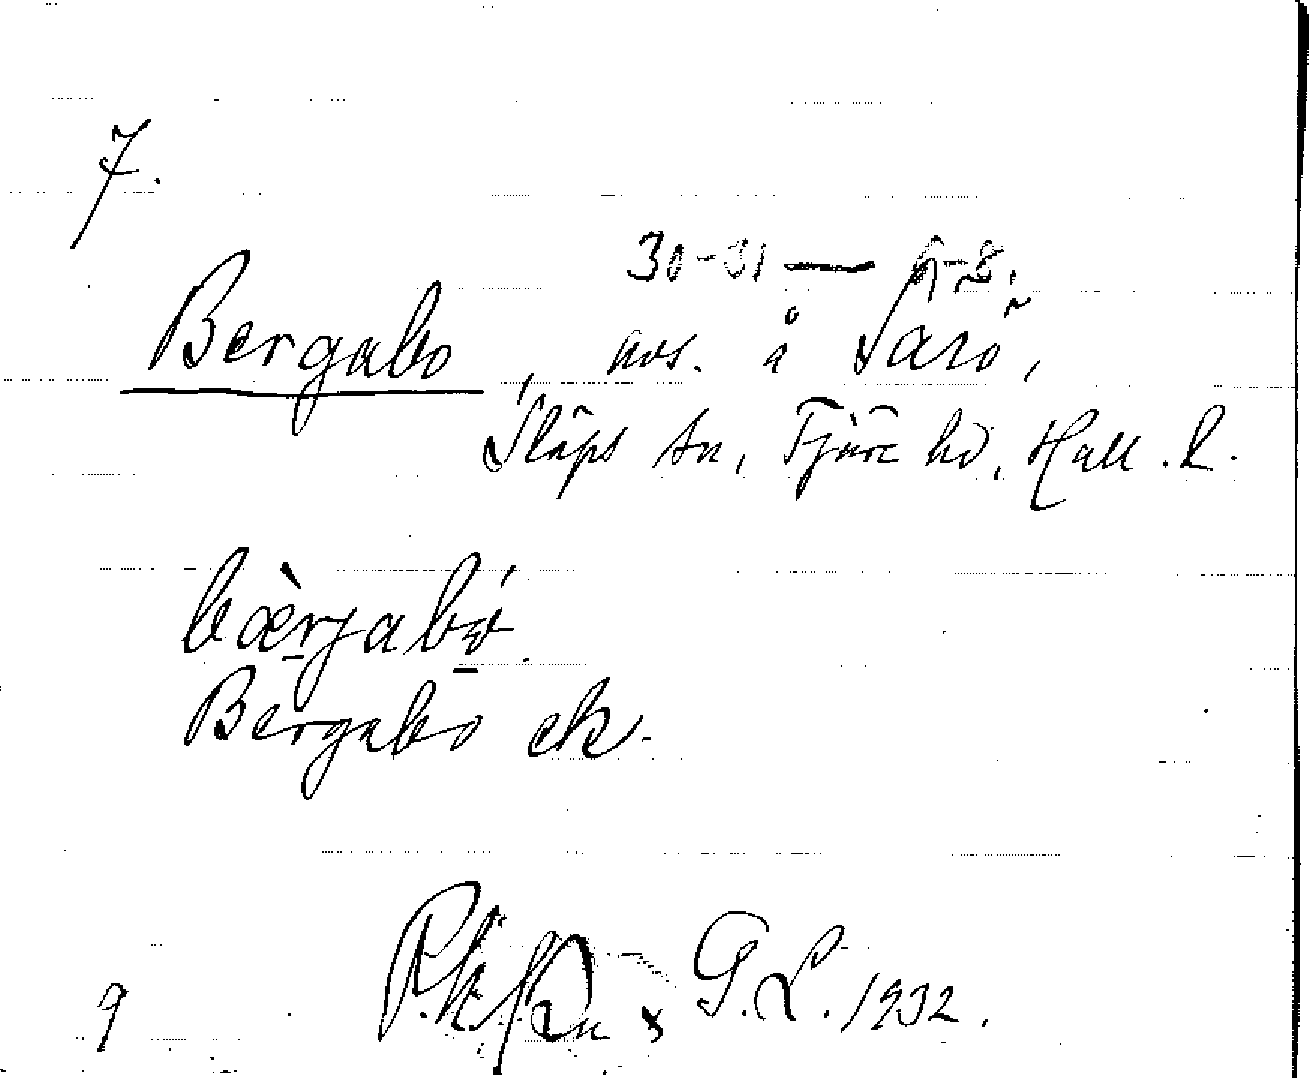 7.
30-31 — 6-8.
Bergabo, avs. å Särö,
Släps sn, Fjäre hd, Hall. l.
bær̀gabó.
Bergabo ek.
G.L. 1932.
9